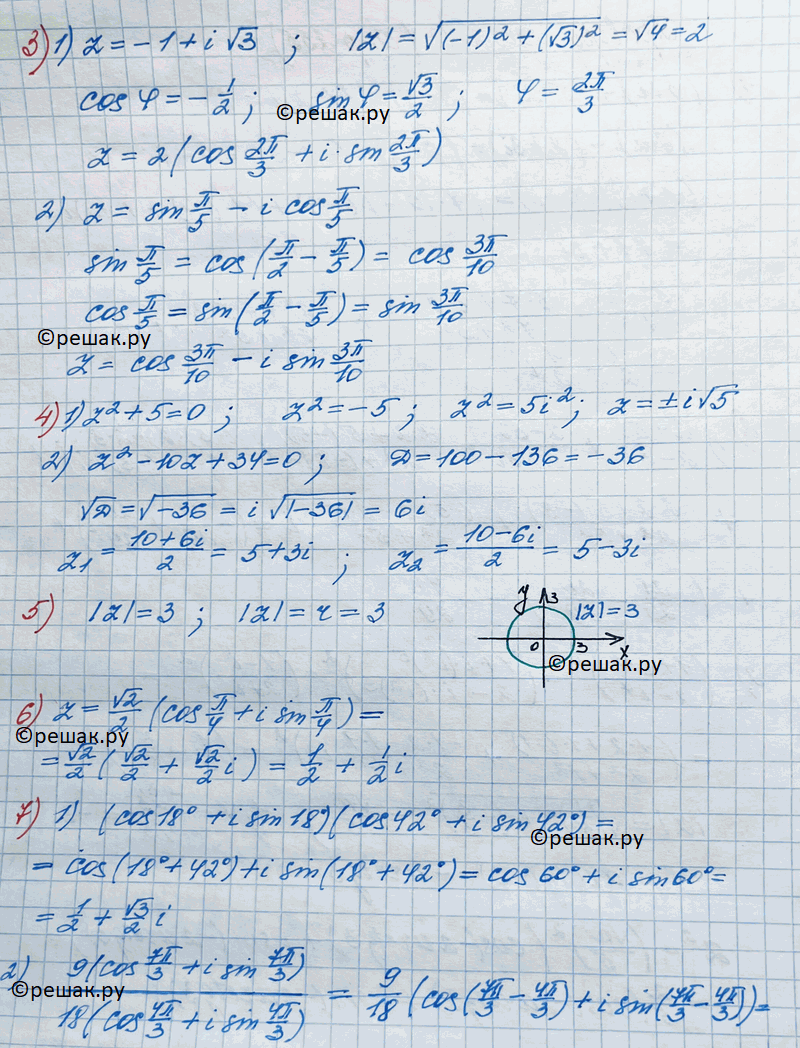 3) 1) z = -1 + i√3 ; |z| = √((-1)² + (√3)²) = √4 = 2
cos φ = -1/2 ; sin φ = √3/2 ; φ = 2π/3
©решак.ру
z = 2(cos 2π/3 + i·sin 2π/3)
2) z = sin π/5 - i cos π/5
sin π/5 = cos(π/2 - π/5) = cos 3π/10
cos π/5 = sin(π/2 - π/5) = sin 3π/10
©решак.ру
z = cos 3π/10 - i sin 3π/10
4) 1) z² + 5 = 0 ; z² = -5 ; z² = 5i² ; z = ±i√5
2) z² - 10z + 34 = 0 ; D = 100 - 136 = -36
√D = √-36 = i √|-36| = 6i
z₁ = (10+6i)/2 = 5+3i ; z₂ = (10-6i)/2 = 5-3i
5) |z| = 3 ; |z| = r = 3
y 3 |z| = 3
0 3 x
©решак.ру
6) z = √2/2 (cos π/4 + i sin π/4) =
©решак.ру
= √2/2 (√2/2 + √2/2 i) = 1/2 + 1/2 i
7) 1) (cos 18° + i sin 18°)(cos 42° + i sin 42°) =
©решак.ру
= cos(18° + 42°) + i sin(18° + 42°) = cos 60° + i sin 60° =
= 1/2 + √3/2 i
2) 9(cos 7π/3 + i sin 7π/3) / 18(cos 4π/3 + i sin 4π/3) = 9/18 (cos(7π/3 - 4π/3) + i sin(7π/3 - 4π/3)) =
©решак.ру